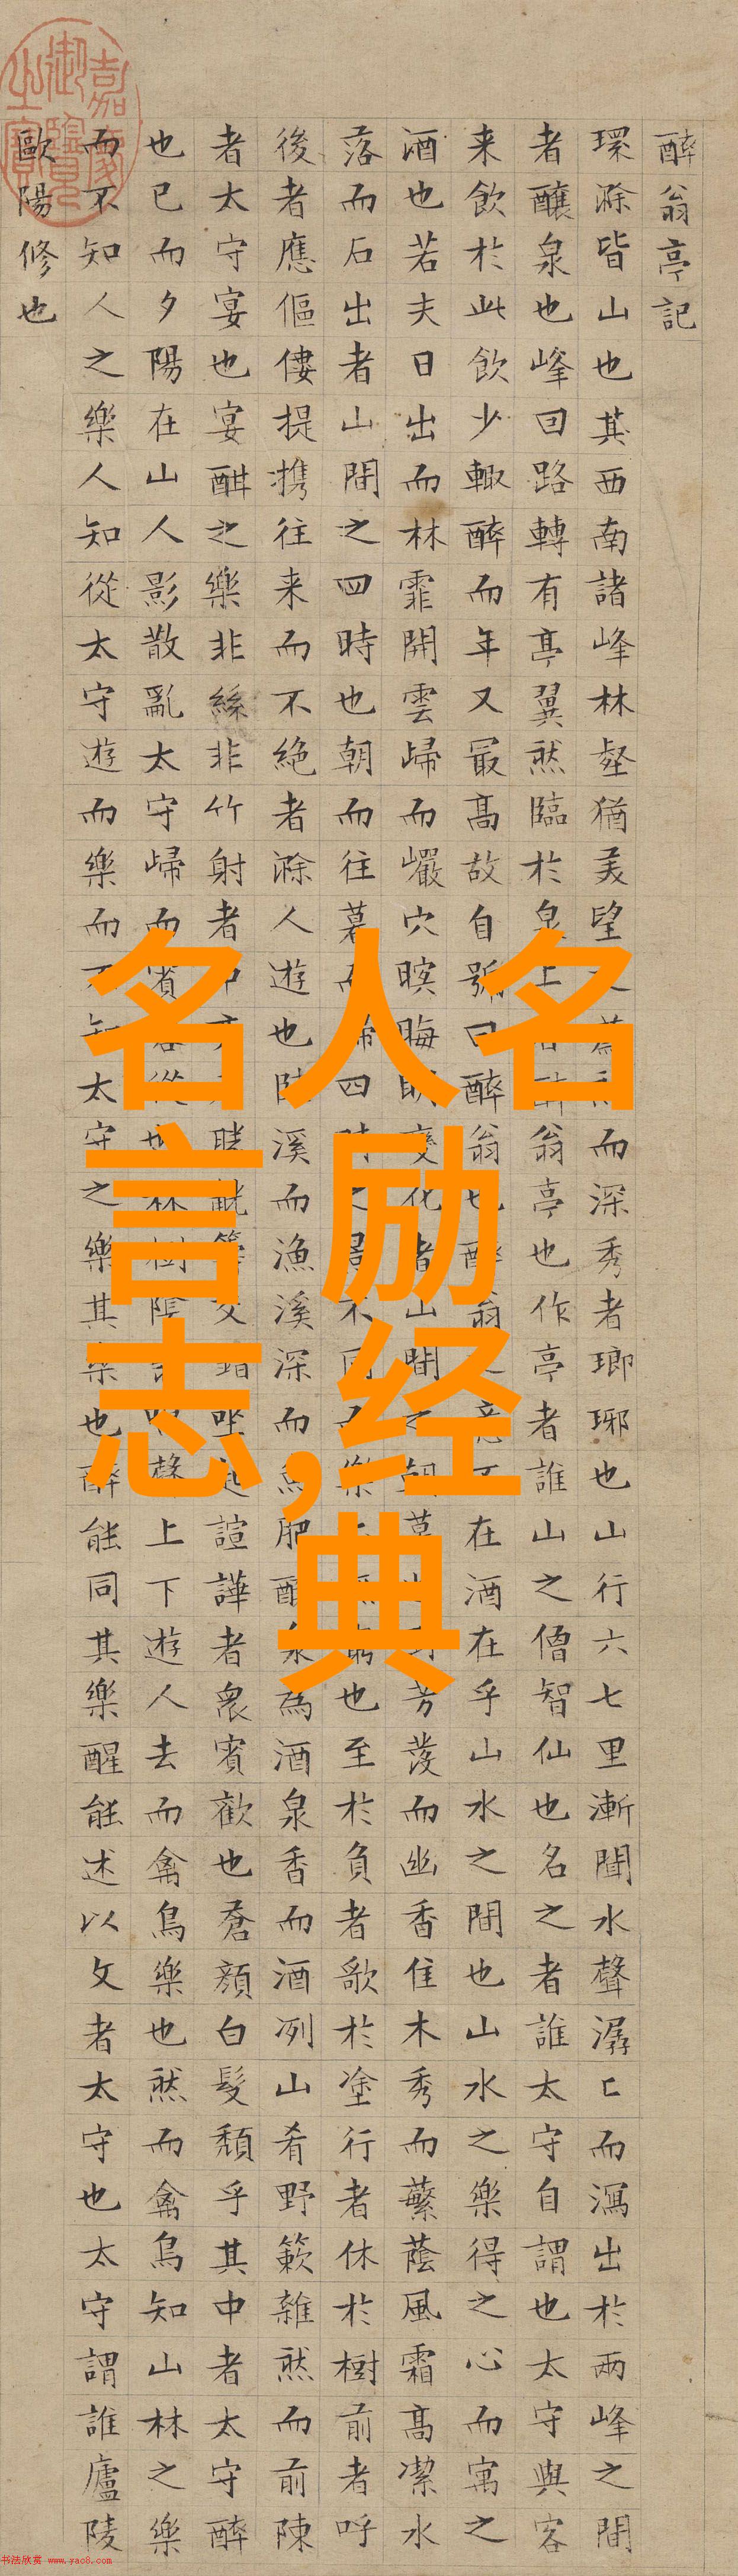 醉翁亭記
環滁皆山也其西南諸峰林壑猶美望之蔚然而深秀者瑯琊也山行六七里漸聞水聲潺匕而瀉出於兩峰之間
者釀泉也峰回路轉有亭翼然臨於泉上者醉翁亭也作亭者誰山之僧智仙也名之者誰太守自謂也太守與客
来飲於此飲少輒醉而年又最高故自號曰醉翁也醉翁之意不在酒在乎山水之間也山水之樂得之心而寓之
酒也若夫日出而林霏開雲歸而巖穴暝晦明變化者山間之朝暮也野芳發而幽香佳木秀而蘩蔭風霜高潔水
落而石出者山間之四時也朝而往暮而歸四時之景不同而樂亦無窮也至於負者歌於塗行者休於樹前者呼
後者應傴僂提攜往来而不絶者滁人遊也臨溪而漁溪深而魚肥釀泉為酒泉香而酒冽山肴野蔌雜然而前陳
者太守宴也宴酣之樂非絲非竹射者中奕者勝觥籌交錯坐起諠譁者衆賓歡也蒼顔白髮頹乎其中者太守醉
也已而夕陽在山人影散亂太守歸而賓客從也林樹陰翳鳴聲上下遊人去而禽鳥樂也然而禽鳥知山林之樂
而不知人之樂人知從太守遊而樂而不知太守之樂其樂也醉能同其樂醒能述以文者太守也太守謂誰廬陵
歐陽修也
嘉慶御覽之寶
名人名
言励
志,经
典
书法欣赏 www.yac8.com